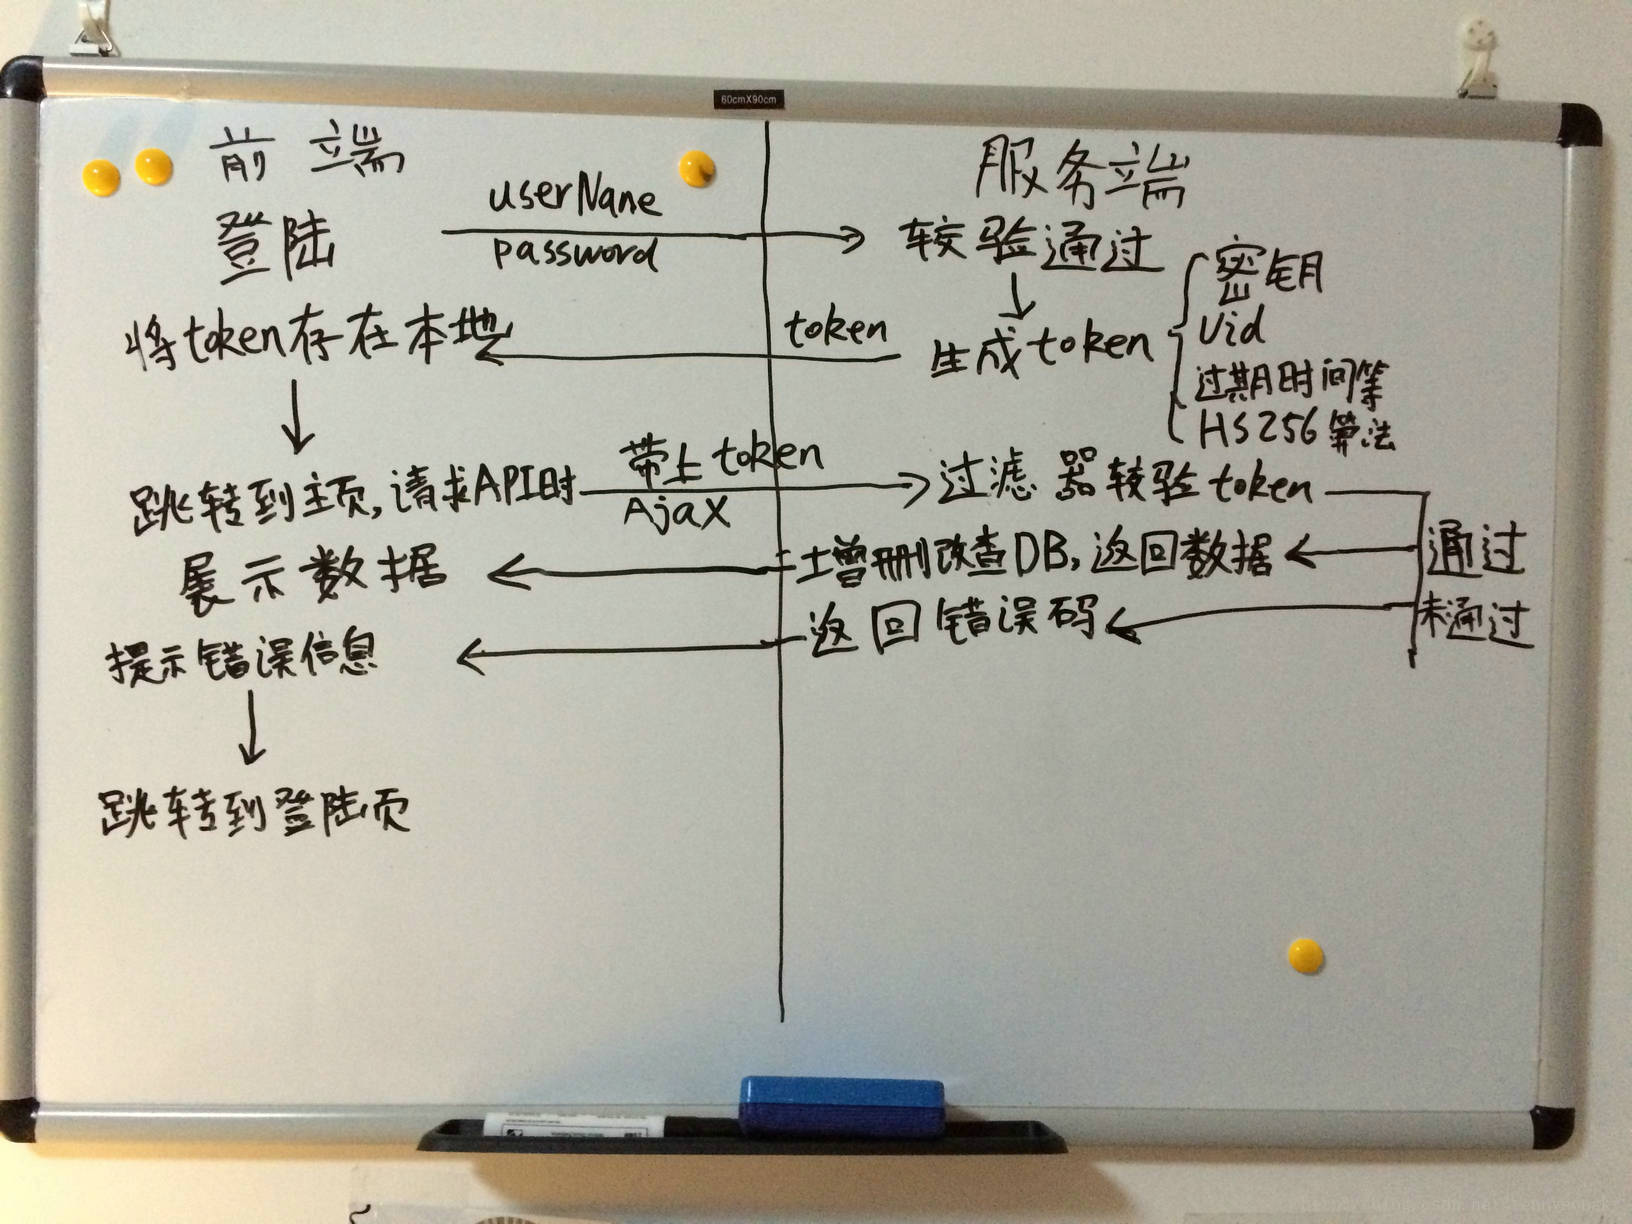 60cmX90cm
前端
服务端
登陆
userName
password
较验通过
密钥
Uid
过期时间等
HS256算法
将token存在本地
token
生成token
跳转到主页,请求API时
带上token
Ajax
过滤器较验token
通过
增删改查DB,返回数据
展示数据
未通过
返回错误码
提示错误信息
跳转到登陆页